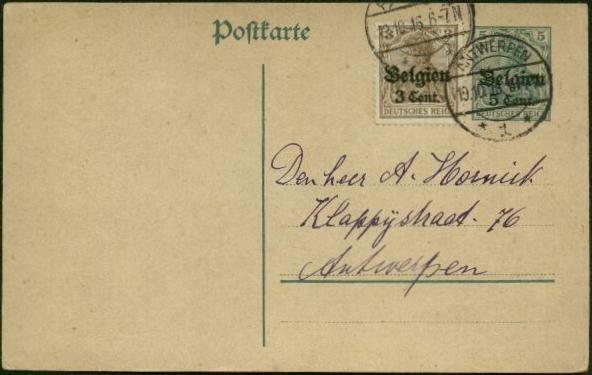 Postkarte
19.10.16. 6-7 N
3
Belgien
3 Cent.
DEUTSCHES REICH
5 5
ANTWERPEN
19.10.16
Belgien
5 Cent.
DEUTSCHES REICH
* 1 *
Den heer A. Hornick
Klappijstraat. 76
Antwerpen